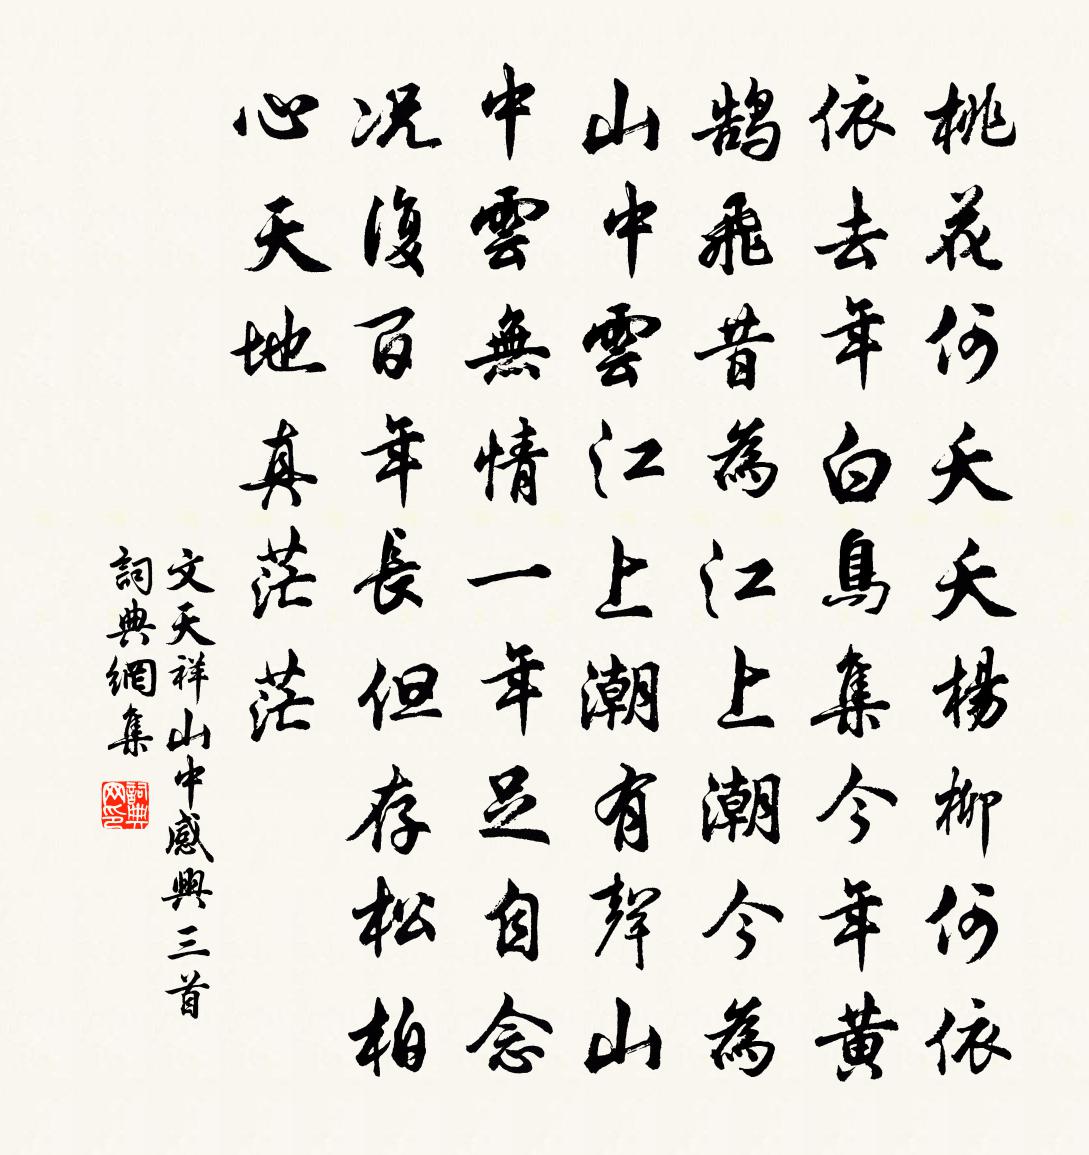 桃花何夭夭楊柳何依
依去年白鳥集今年黃
鵠飛昔為江上潮今為
山中雲江上潮有聲山
中雲無情一年足自念
況復百年長但存松柏
心天地真茫茫
文天祥山中感興三首
詞典網集
詞典网印